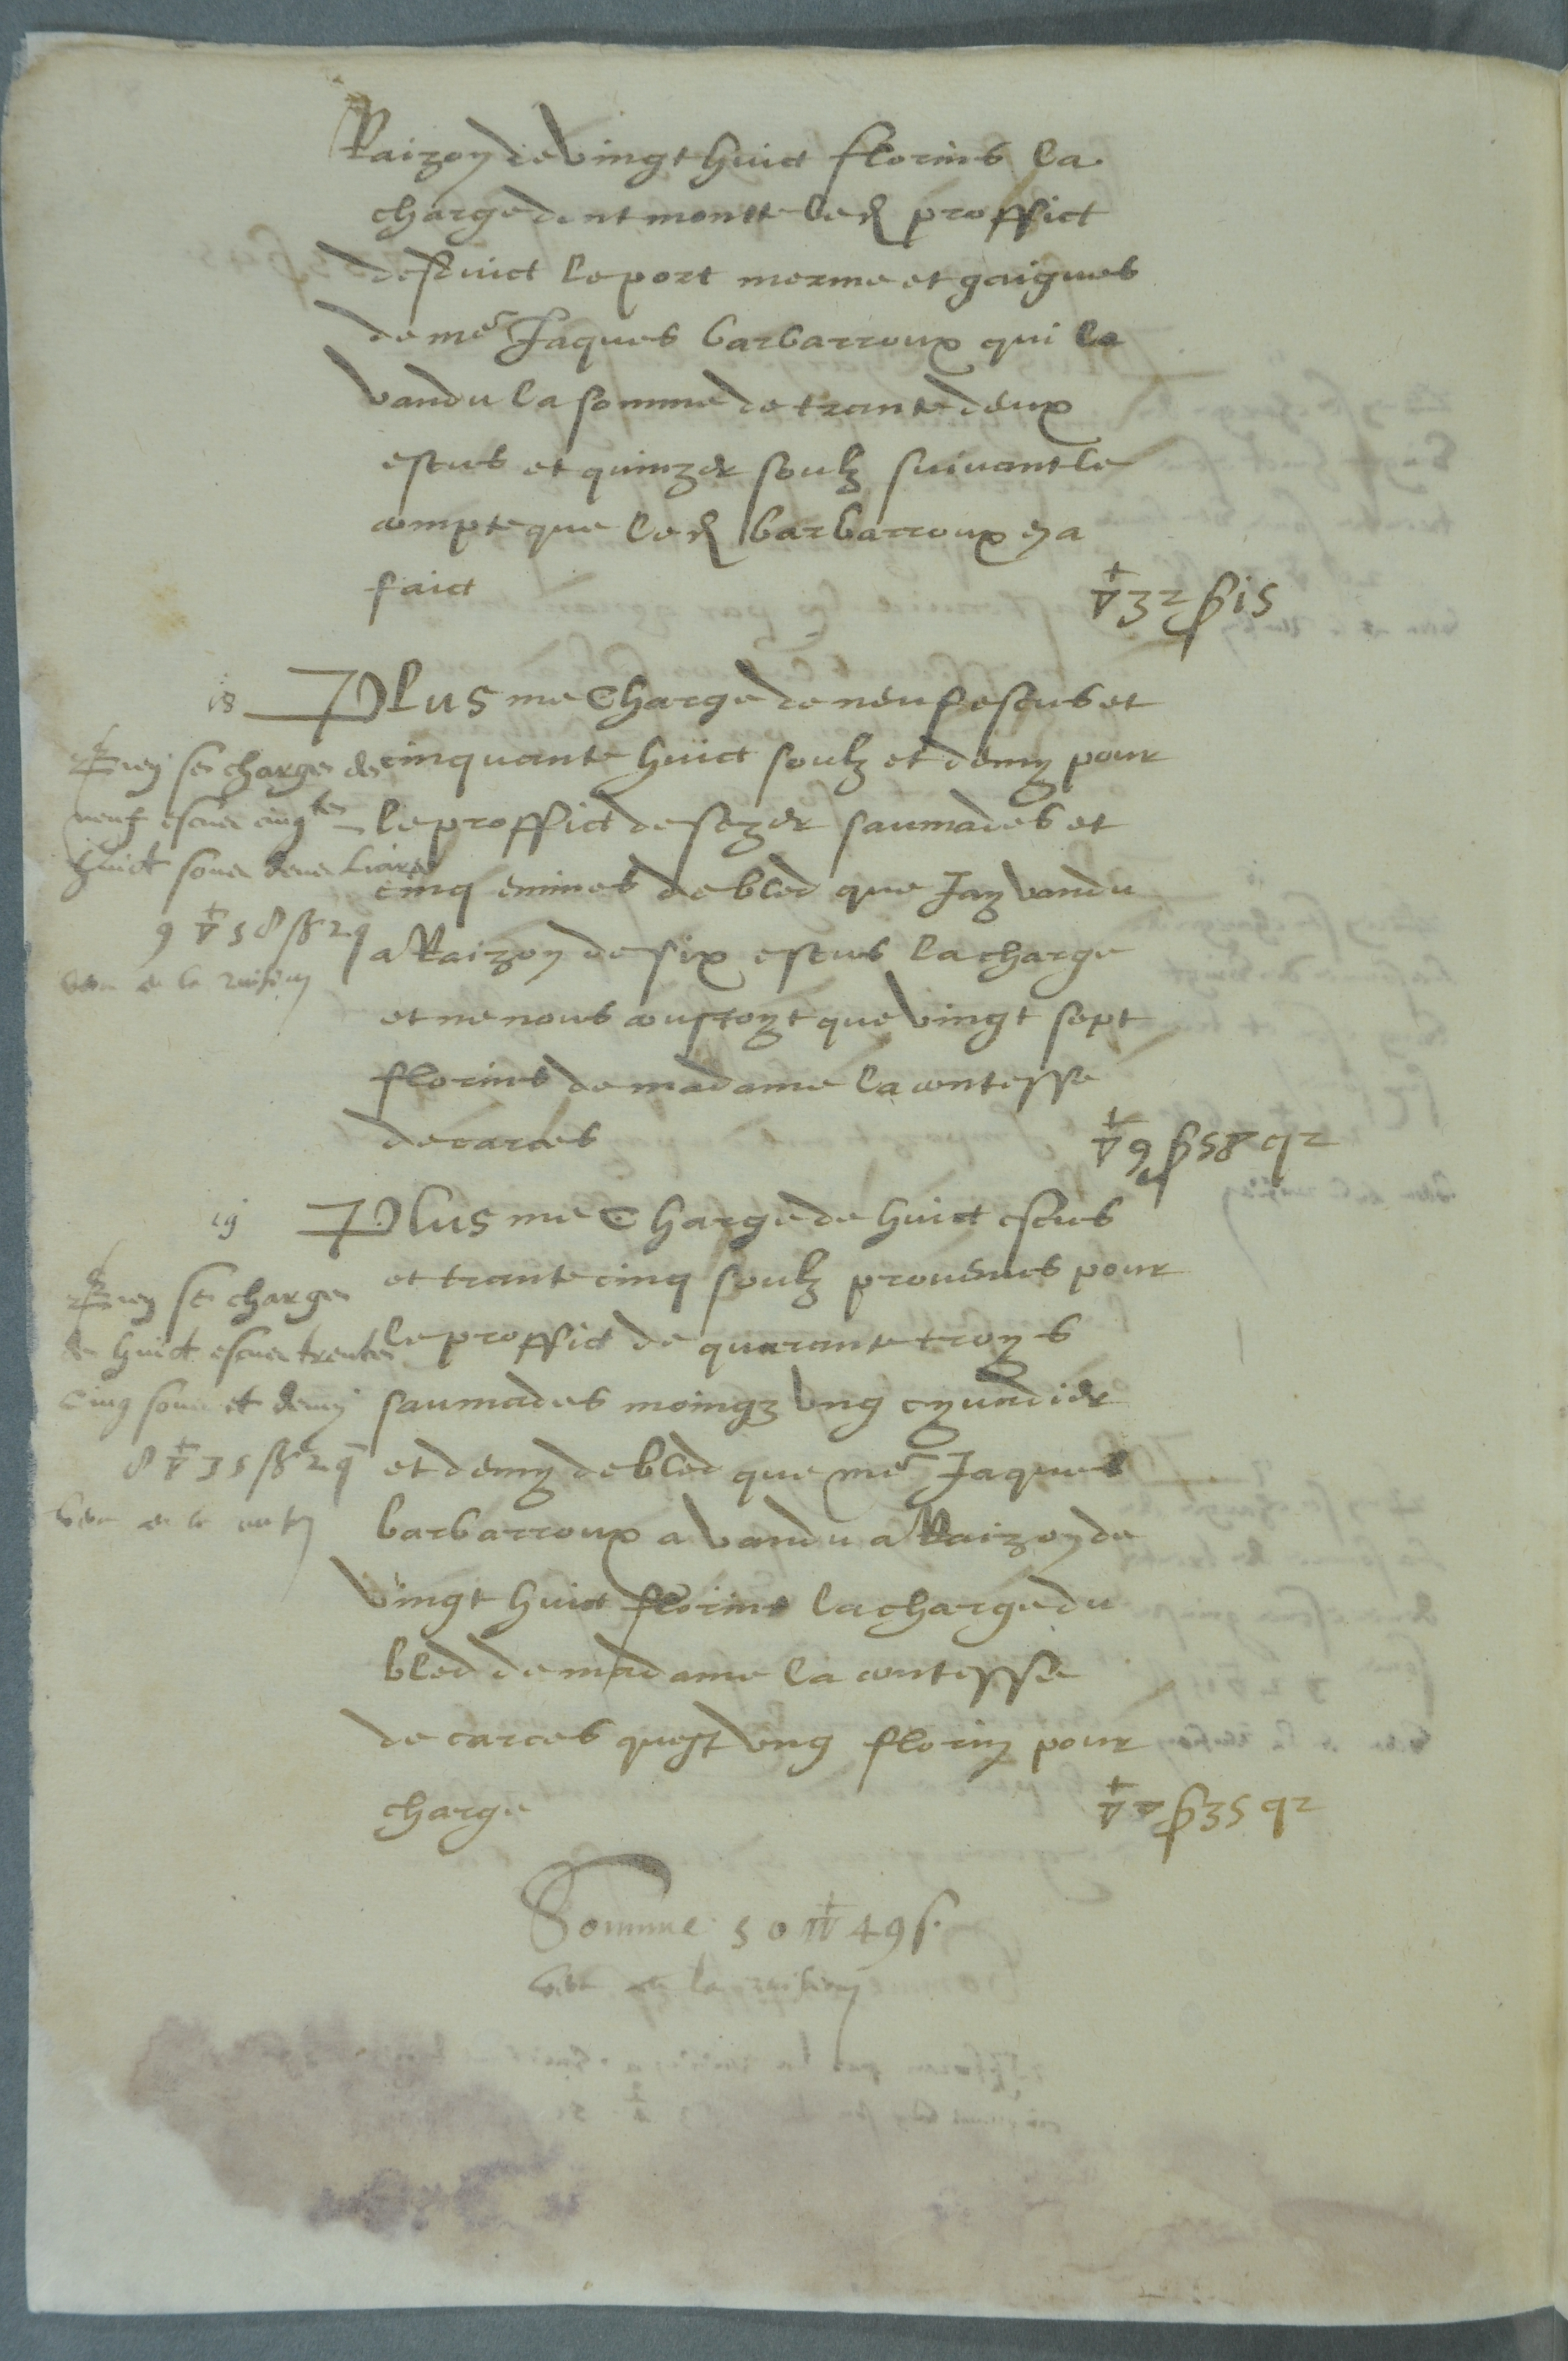 Raizon de vingt huict florins la
charge dont monte led proffict
desduict le port merme et gaignes
de me Jaques barbarroux qui la
vandu la somme de trante deux
escus et quinze soulz suivant le
compte que led barbarroux en a
faict
▽ 32 ß 15
18 Plus me Charge de neuf escus et
cinquante huict soulz et demy pour
le proffict de seze saumades et
cinq emines de bled que Jay vandu
a Raizon de six escus la charge
et ne nous coustoyt que vingt sept
florins de madame la contesse
de carces
▽ 9 ß 58 q 2
se charge de
neuf escus cinqte
huict soux deux liars
9 ▽ 58 ß 2 q
19 Plus me Charge de huict escus
et trante cinq soulz provenus pour
le proffict de quarante troys
saumades moingz ung eyundier
et demy de bled que me Jaques
barbarroux a vandu a Raizon de
vingt huict florins la charge du
bled de madame la contesse
de carces quest ung florin pour
charge
▽ 8 ß 35 q 2
se charge
de huict escus trente
cinq soux et demy
8 ▽ 35 ß 2 q
Somme 50 ▽ 49 s.